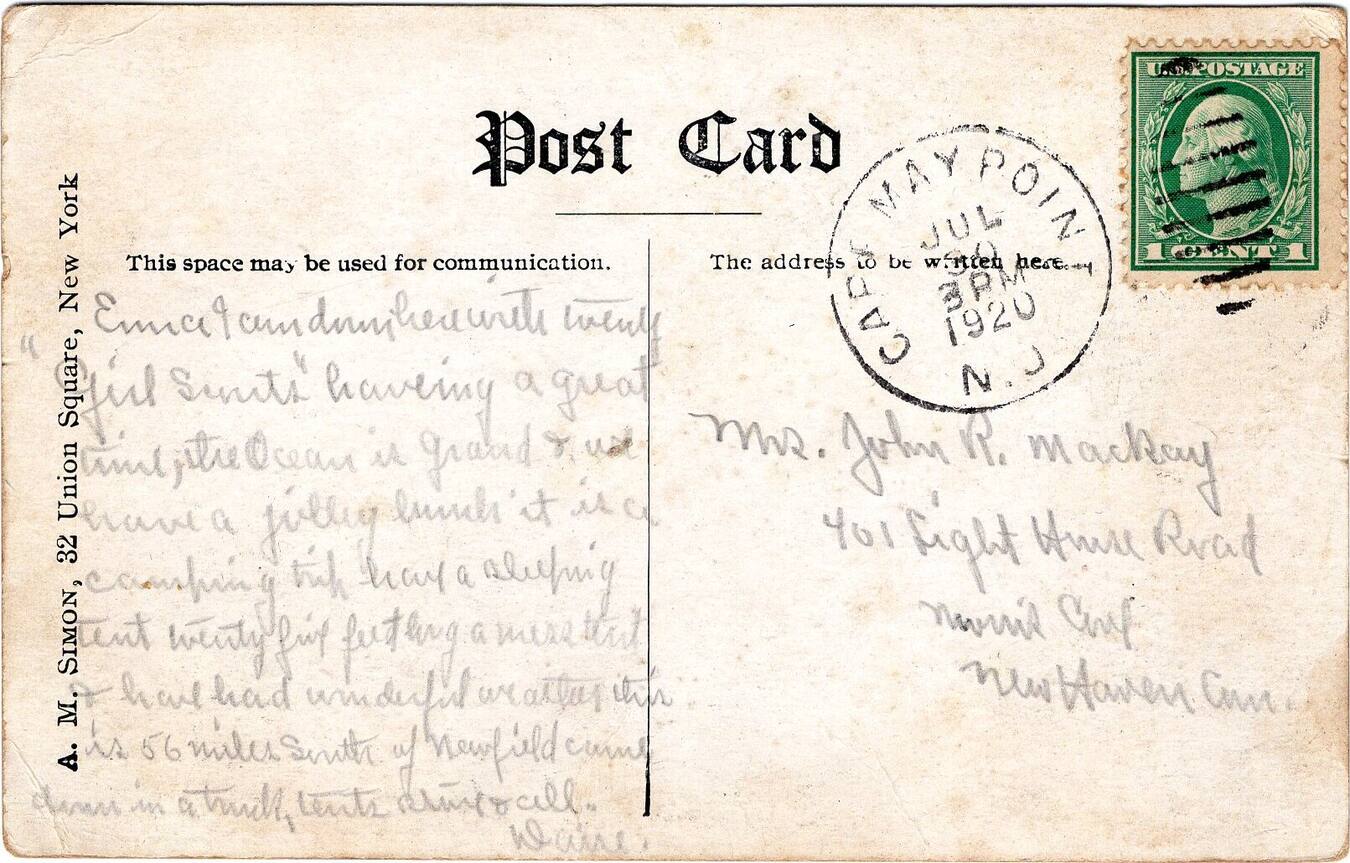 Post Card
This space may be used for communication.
The address to be written here.
A. M. SIMON, 32 Union Square, New York
U.S. POSTAGE
1 CENT 1
CAPE MAY POINT
JUL
30
3 PM
1920
N.J.
I am down here with twenty
"Girl Scouts" haveing a great
time, the Ocean is grand & we
have a jolley bunch it is a
camping trip have a sleeping
tent twenty five feet long a mess tent
& have had wonderful weather this
is 56 miles South of Newfield came
down in a truck, tents & all.
Mrs. John R. Mackay
401 Light House Road
Morris Cove
New Haven Conn.